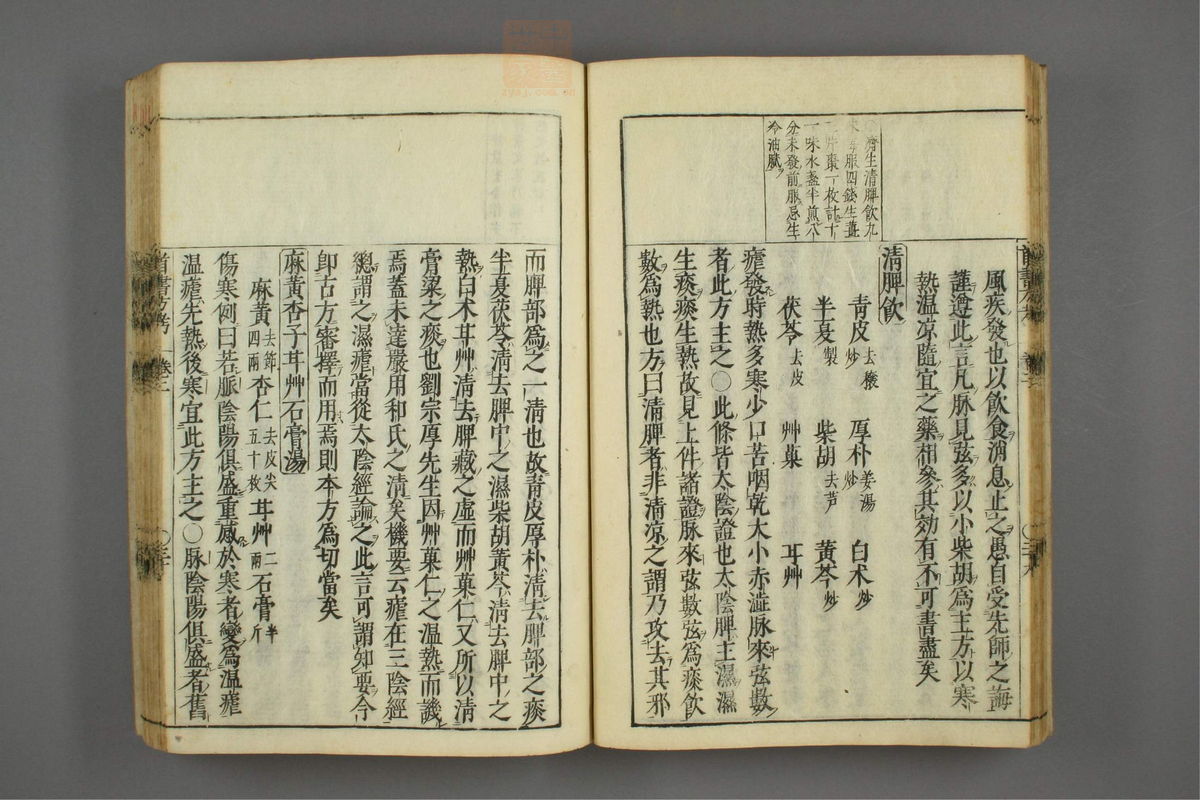 濟生清脾飲九
服四錢生薑
片棗一枚計十
一味水盞半煎八
分未發前服忌生
冷油膩
風疾發也以飲食消息止之愚自受先師之誨
謹遵此言凡脈見弦多以小柴胡爲主方以寒
熱温凉隨宜之藥相參其効有不可書盡矣
清脾飲
青皮去穰炒 厚朴姜湯炒 白术炒
半夏製 柴胡去芦 黃芩炒
茯苓去皮 艸菓 耳艸
瘧發時熱多寒少口苦咽乾大小赤澁脈來弦數
者此方主之○此條皆太陰證也太陰脾主濕濕
生痰痰生熱故見上件諸證脈來弦數弦爲痰飲
數爲熱也方曰清脾者非清凉之謂乃攻去其邪
而脾部爲之一清也故青皮厚朴清去脾部之痰
半夏茯苓清去脾中之濕柴胡黃芩清去脾中之
熱白术耳艸清去脾藏之虛而艸菓仁又所以清
膏粱之痰也劉宗厚先生因艸菓仁之温熱而譏
焉蓋未達嚴用和氏之清矣機要云瘧在三陰經
總謂之濕瘧當從太陰經論之此言可謂知要今
卽古方審擇而用焉則本方爲切當矣
麻黃杏子耳艸石膏湯
麻黃去節四兩 杏仁去皮尖五十枚 耳艸二兩 石膏半斤
傷寒例曰若脈陰陽俱盛重感於寒者變爲温瘧
温瘧先熱後寒宜此方主之○脈陰陽俱盛者舊
卷三
zysj.com.cn